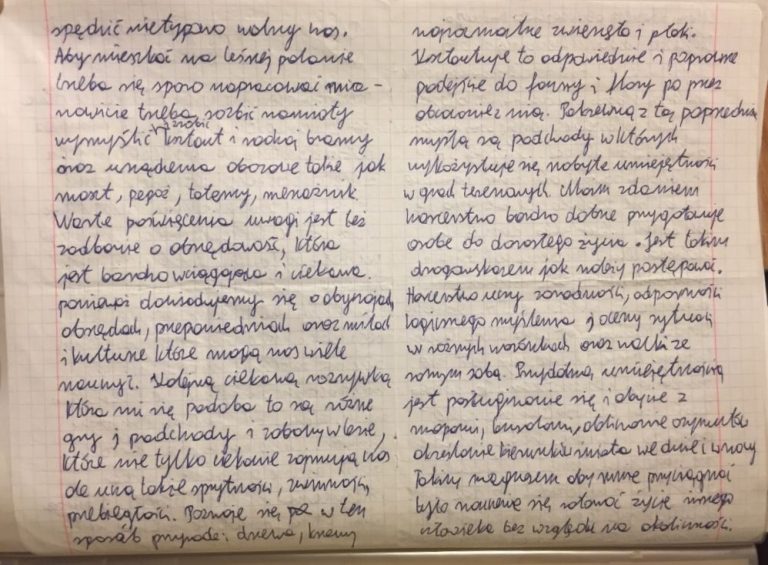 spędzić nietypowo wolny czas.
Aby mieszkać na leśnej polanie
trzeba się sporo napracować mia-
nowicie trzeba rozbić namioty
wymyślić i zrobić kształt i rodzaj bramy
oraz urządzenia obozowe takie jak
maszt, totemy,
Warte poświęcenia uwagi jest też
zadbanie o obrzędowość, która
jest bardzo wciągająca i ciekawa.
ponieważ dowiadujemy się o obyczajach
obrzędach, przepowiedniach oraz mitach
i kulturze które mogą nas wiele
nauczyć. Kolejną ciekawą rozrywką
która mi się podoba to są różne
gry i podchody i zabawy w lesie,
które nie tylko ciekawie zajmują nas
ale uczą także sprytności, zwinności,
przebiegłości. Poznaje się w ten
sposób przyrodę: drzewa, krzewy
najrozmaitsze zwierzęta i ptaki.
Kształtuje to odpowiednie i poprawne
podejście do fauny i flory po przez
obcowanie z nią. Pokrewną z tą poprzednią
myślą są podchody w których
wykożystuje się nabyte umiejętności
w grach terenowych. Moim zdaniem
harcerstwo bardzo dobrze przygotowuje
osobę do dorosłego życia. Jest takim
drogowskazem jak należy postępować.
Harcerstwo uczy zaradności, odporności
logicznego myślenia i oceny sytuacji
w różnych warunkach oraz walki ze
samym sobą. Przydatną umiejętnością
jest posługiwanie się i obycie z
mapami, busolami, obliczanie azymutów
określanie kierunków świata we dnie i w nocy
Takim magnesem aby mnie przyciągnąć
było nauczenie się ratować życie innego
człowieka bez względu na okoliczności.